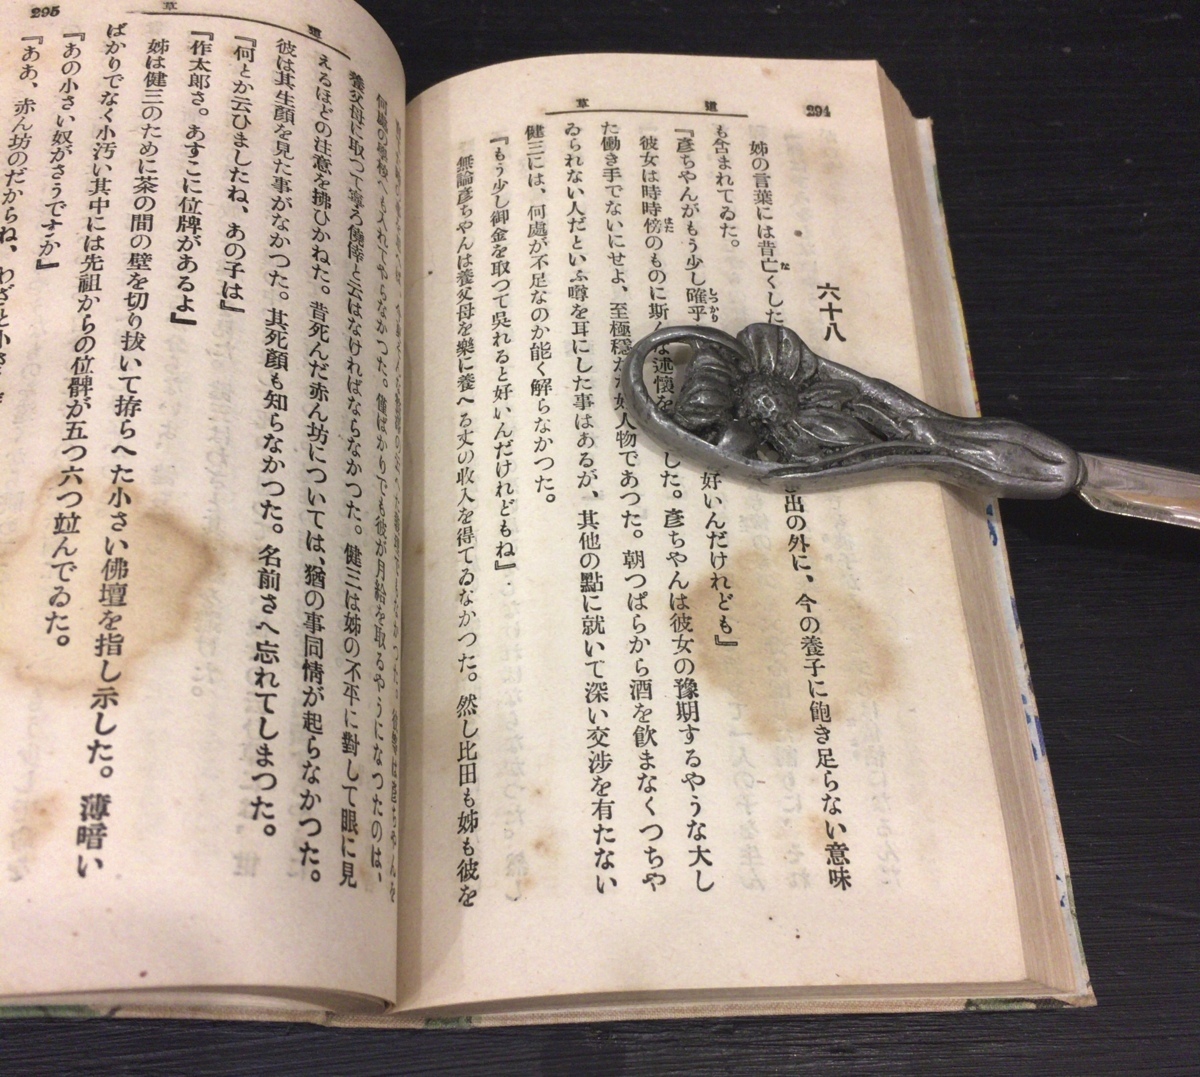 294
道草
六十八
姉の言葉には昔亡くした 出の外に、今の養子に飽き足らない意味
も含まれてゐた。
『彦ちやんがもう少し確乎 好いんだけれども』
彼女は時時傍のものに斯んな述懷を した。彦ちやんは彼女の豫期するやうな大し
た働き手でないにせよ、至極穩 な好人物であつた。朝つぱらから酒を飮まなくつちや
ゐられない人だといふ噂を耳にした事はあるが、其他の點に就いて深い交渉を有たない
健三には、何處が不足なのか能く解らなかつた。
『もう少し御金を取つて呉れると好いんだけれどもね』
無論彦ちやんは養父母を樂に養へる丈の收入を得てゐなかつた。然し比田も姉も彼を
295
道草
へも入れてやらなかつた。僅ばかりでも彼が月給を取るやうになつたのは、
養父母に取つて寧ろ僥倖と云はなければならなかつた。健三は姉の不平に對して眼に見
えるほどの注意を拂ひかねた。昔死んだ赤ん坊については、猶の事同情が起らなかつた。
彼は其生顏を見た事がなかつた。其死顏も知らなかつた。名前さへ忘れてしまつた。
『何とか云ひましたね、あの子は』
『作太郎さ。あすこに位牌があるよ』
姉は健三のために茶の間の壁を切り拔いて拵らへた小さい佛壇を指し示した。薄暗い
ばかりでなく小汚い其中には先祖からの位牌が五つ六つ竝んでゐた。
『あの小さい奴がさうですか』
『ああ、赤ん坊のだからね、わざと小さ